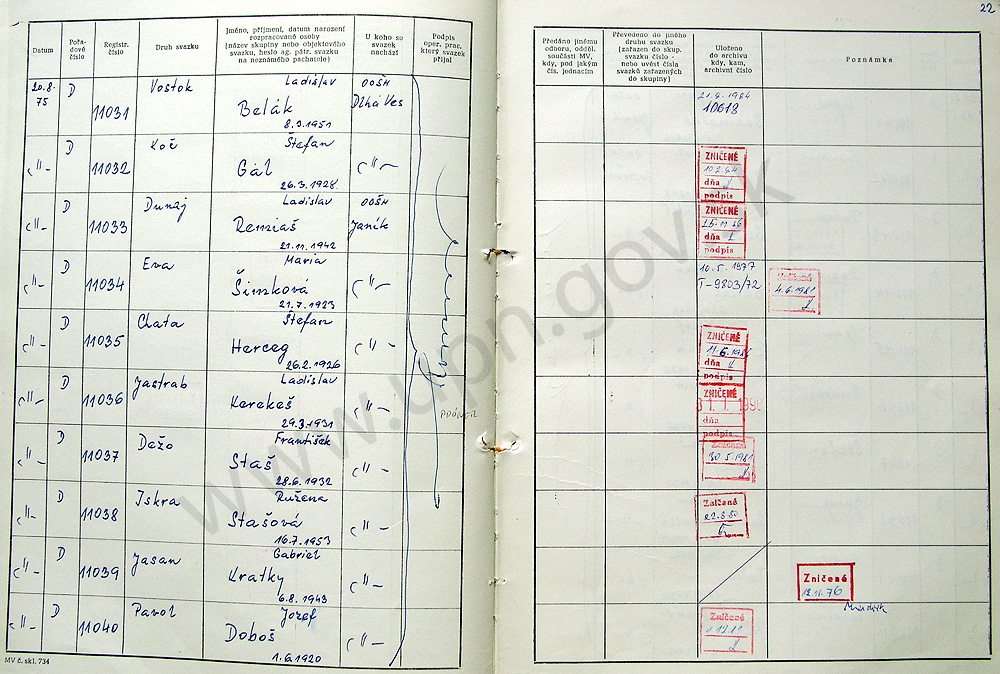 22
Datum
Pořa-
dové
číslo
Registr.
číslo
Druh svazku
Jméno, příjmení, datum narození
rozpracované osoby
(název skupiny nebo objektového
svazku, heslo ag. pátr. svazku
na neznámého pachatele)
U koho se
svazek
nachází
Podpis
oper. prac.
který svazek
přijal
Předáno jinému
odboru, odděl.
součásti MV,
kdy, pod jakým
čís. jednacím
Převedeno do jiného
druhu svazku
(zařazen do skup.
svazku číslo -
nebo uvést čísla
svazků zařazených
do skupiny)
Uloženo
do archivu
kdy, kam,
archivní číslo
Poznámka
20.8.
75
D
11031
Vostok
Ladislav
Belák
8.3.1951
OOŠH
Dlhá Ves
21.6.1984
10618
D
11032
Koč
Štefan
Gál
26.3.1928
ZNIČENÉ
dňa
podpis
D
11033
Dunaj
Ladislav
Remiáš
21.11.1942
OOŠH
Janík
ZNIČENÉ
dňa
podpis
D
11034
Eva
Maria
Šimková
21.7.1923
10.5.1977
T-9803/72
Zničené
4.6.1981
D
11035
Chata
Štefan
Herceg
26.2.1926
ZNIČENÉ
dňa
podpis
D
11036
Jastrab
Ladislav
Kerekeš
29.3.1931
ZNIČENÉ
dňa
podpis
D
11037
Dežo
František
Staš
28.6.1932
30.5.1981
D
11038
Iskra
Ružena
Stašová
16.7.1953
Zničené
22.8.80
D
11039
Jasan
Gabriel
Kratky
6.8.1943
Zničené
12.11.76
D
11040
Pavol
Jozef
Doboš
1.6.1920
Zničené
MV č. skl. 734
www.upn.gov.sk